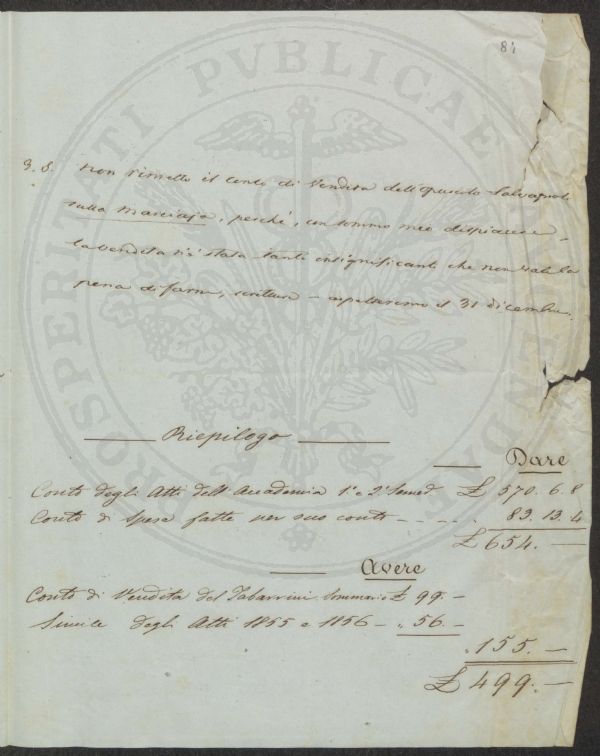 84
PROSPERITATI PVBLICAE AVGENDAE
P. S. Non rimetto il Conto di Vendita dell'opuscolo Salvagnoli
sulla Maremma, perchè, con sommo mio dispiacere -
la vendita è stata tanto insignificante che non vale la
pena di farne scrittura - aspetteremo il 31 dicembre.
Riepilogo
Dare
Conto degli Atti dell'Accademia 1° e 2° Semed. £ 570. 6. 8
Conto di Spese fatte per suo conto - - - - . 83. 13. 4
£ 654. -
Avere
Conto di Vendita del Tabarrini Sommario £ 99. -
Simile degli Atti 1855 e 1856 - " 56. -
" 155. -
£ 499. -